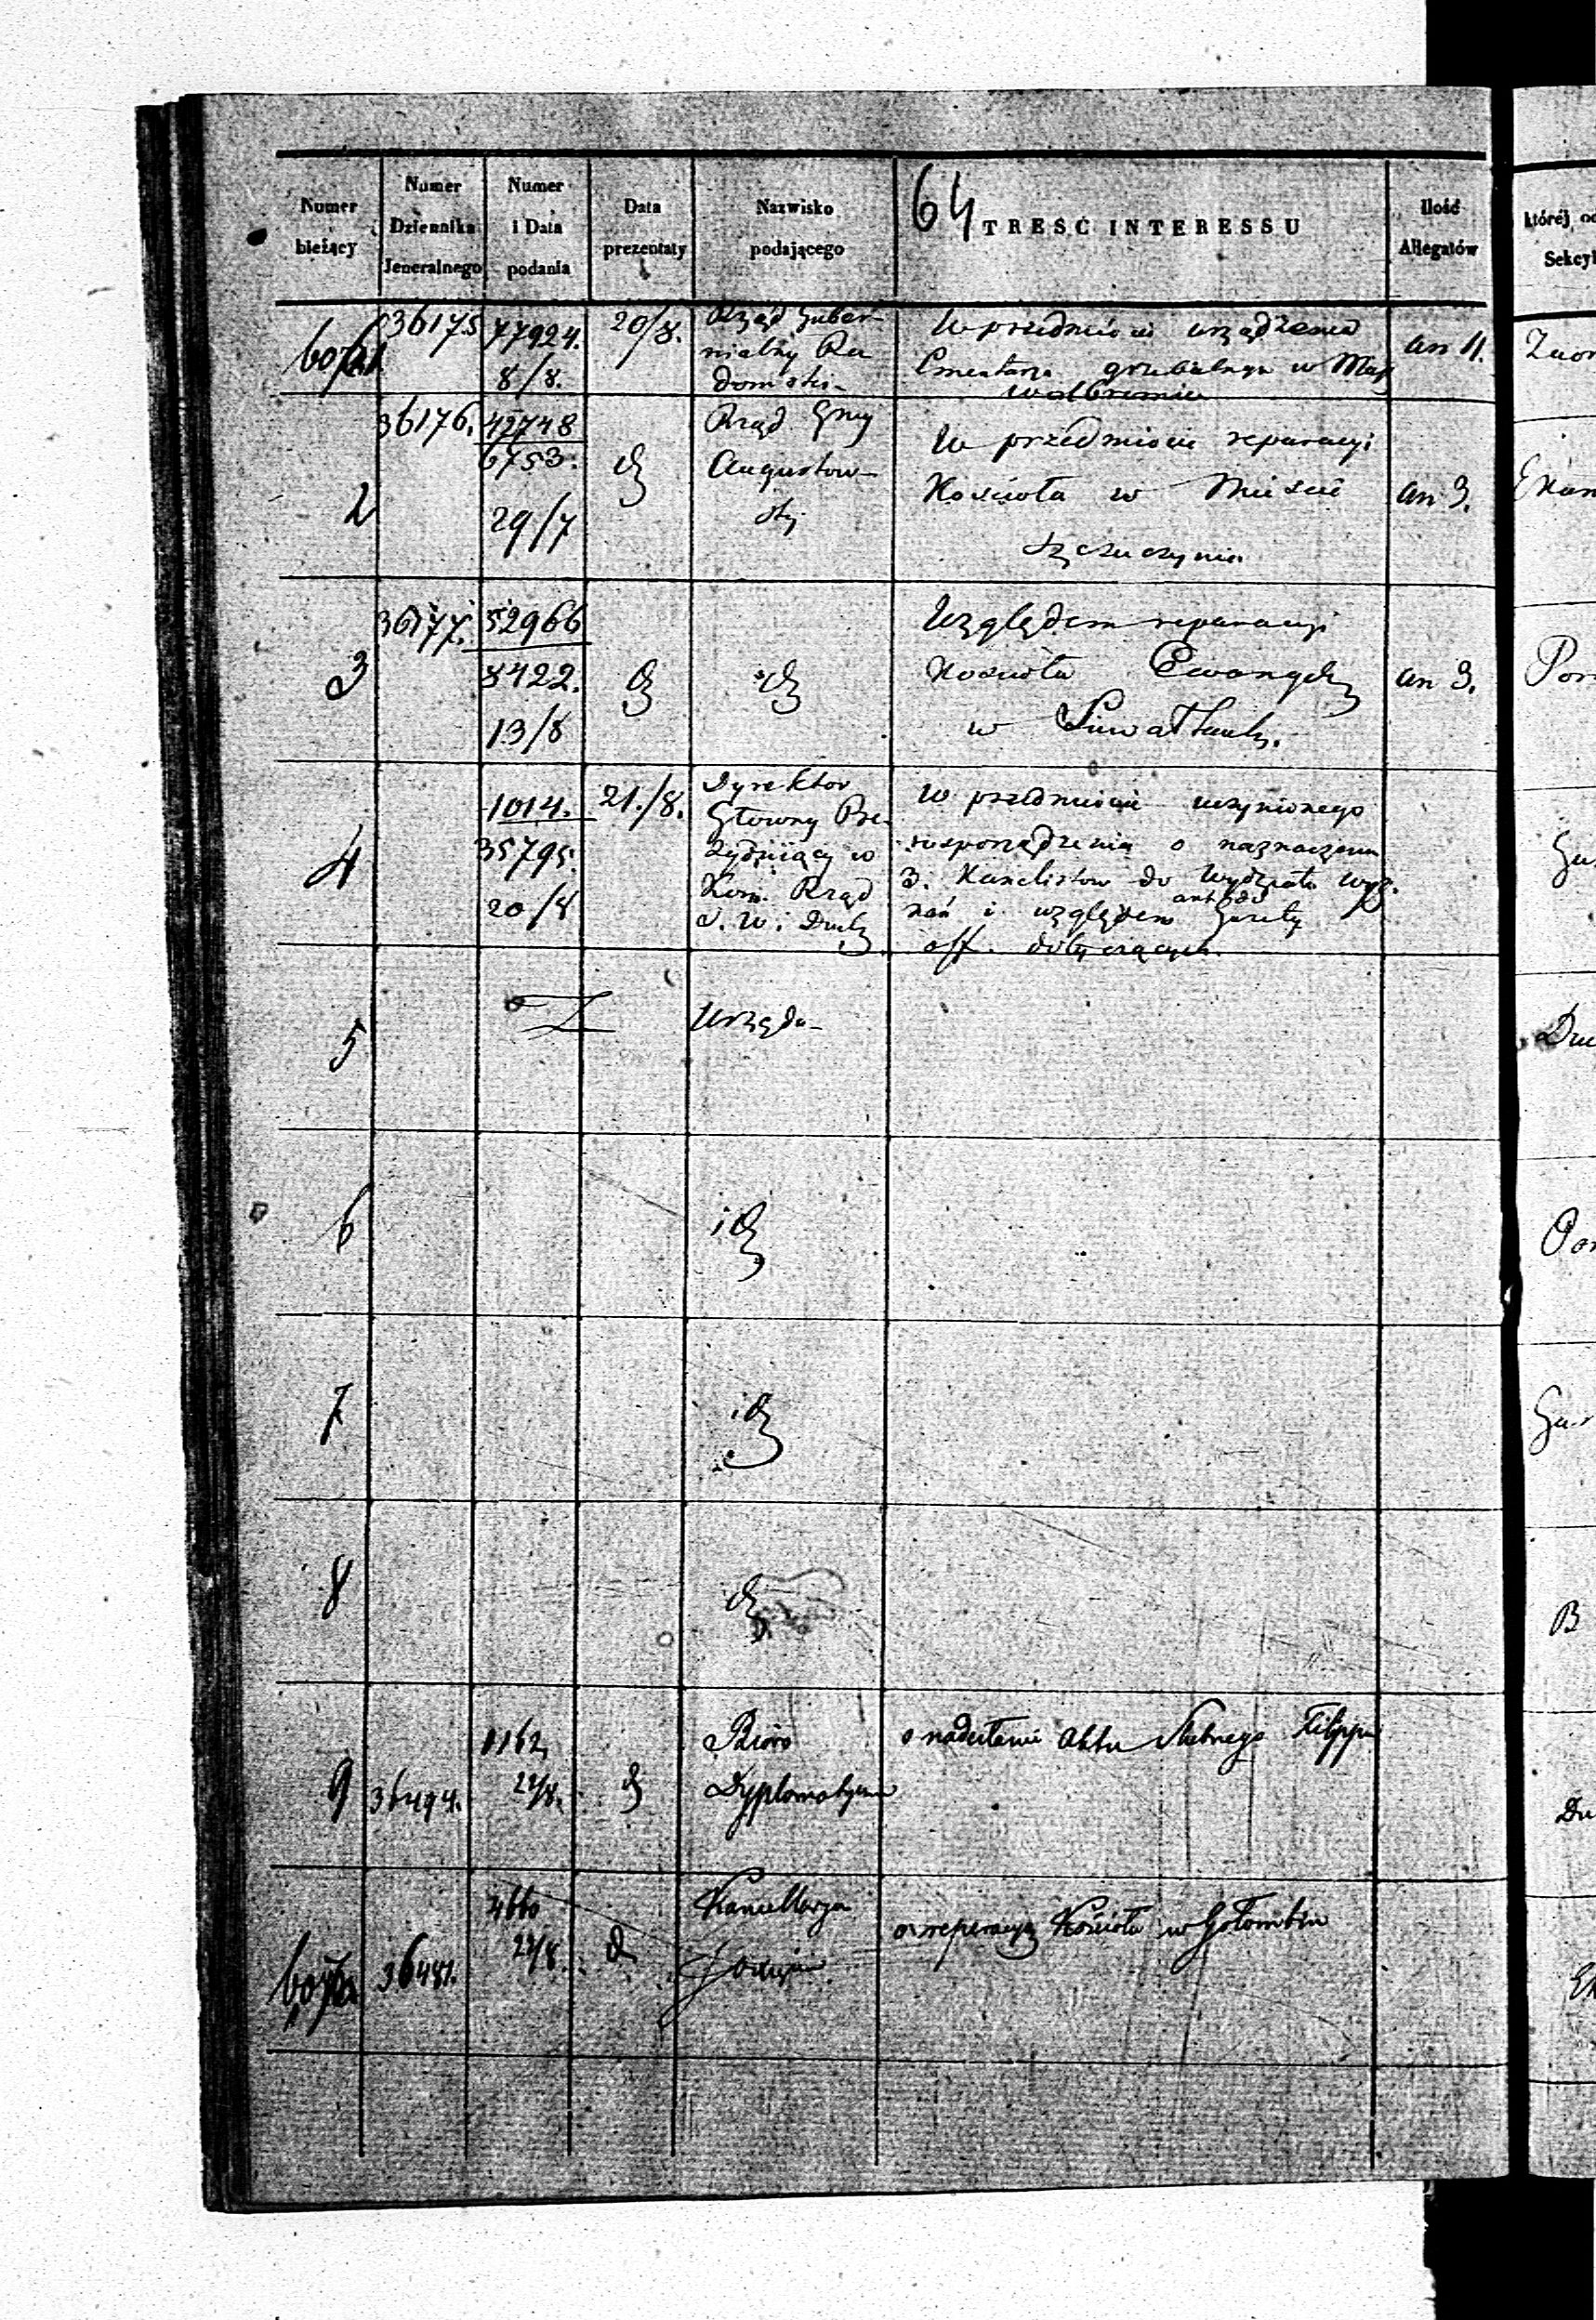 64
Numer bieżący
Numer Dziennika Jeneralnego
Numer i Data podania
Data prezentaty
Nazwisko podającego
TREŚĆ INTERESSU
Ilość Allegatów
której
Sekcyi
36175
77924.
8/8.
20/8.
Rząd Guber-
nialny Ra
domski
W przedmiocie urządzenia
Cmentarza grzebalnego w
Wolbromiu
an 11.
2
36176.
42748
6753.
29/7
Rząd Gny
Augustow-
ski
W przedmiocie reparacyi
Kościoła w Mieście
Szczuczynie.
an 3.
3
36177.
52966
8422.
13/8
Względem reparacyi
Kościoła Ewangel
w Suwałkach.
an 3.
4
1014.
35795.
20/8
21./8.
Dyrektor
Głowny Pre-
zydujący w
Kom. Rząd
S. W. i Duch
W przedmiocie uczynionego
rosporządzenia o naznaczeniu
3. Kancelistow do Wydziału Wyz-
nań i względem Gazety
off. dotyczących
5
Urzędu
6
id
7
id
8
9
36494.
1162,
22/8.
Bióro
Dyplomatyczne
o nadesłanie Aktu Filippa
36481.
4660
22/8.
Kancellarya
o reperacyą Kościoła w Gołombiu